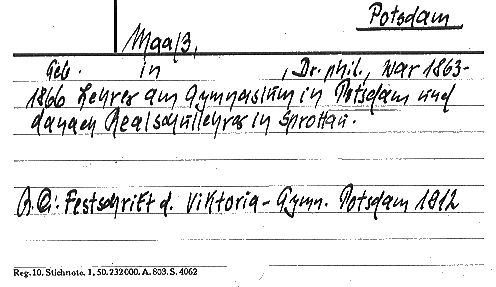 Potsdam
Maaß,
Geb. in , Dr. phil., war 1863-
1866 Lehrer am Gymnasium in Potsdam und
danach Realschullehrer in Sprottau.
A.Q: Festschrift d. Viktoria-Gymn. Potsdam 1812
Reg. 10. Stichnote. 1, 50. 232000. A. 803. S. 4062